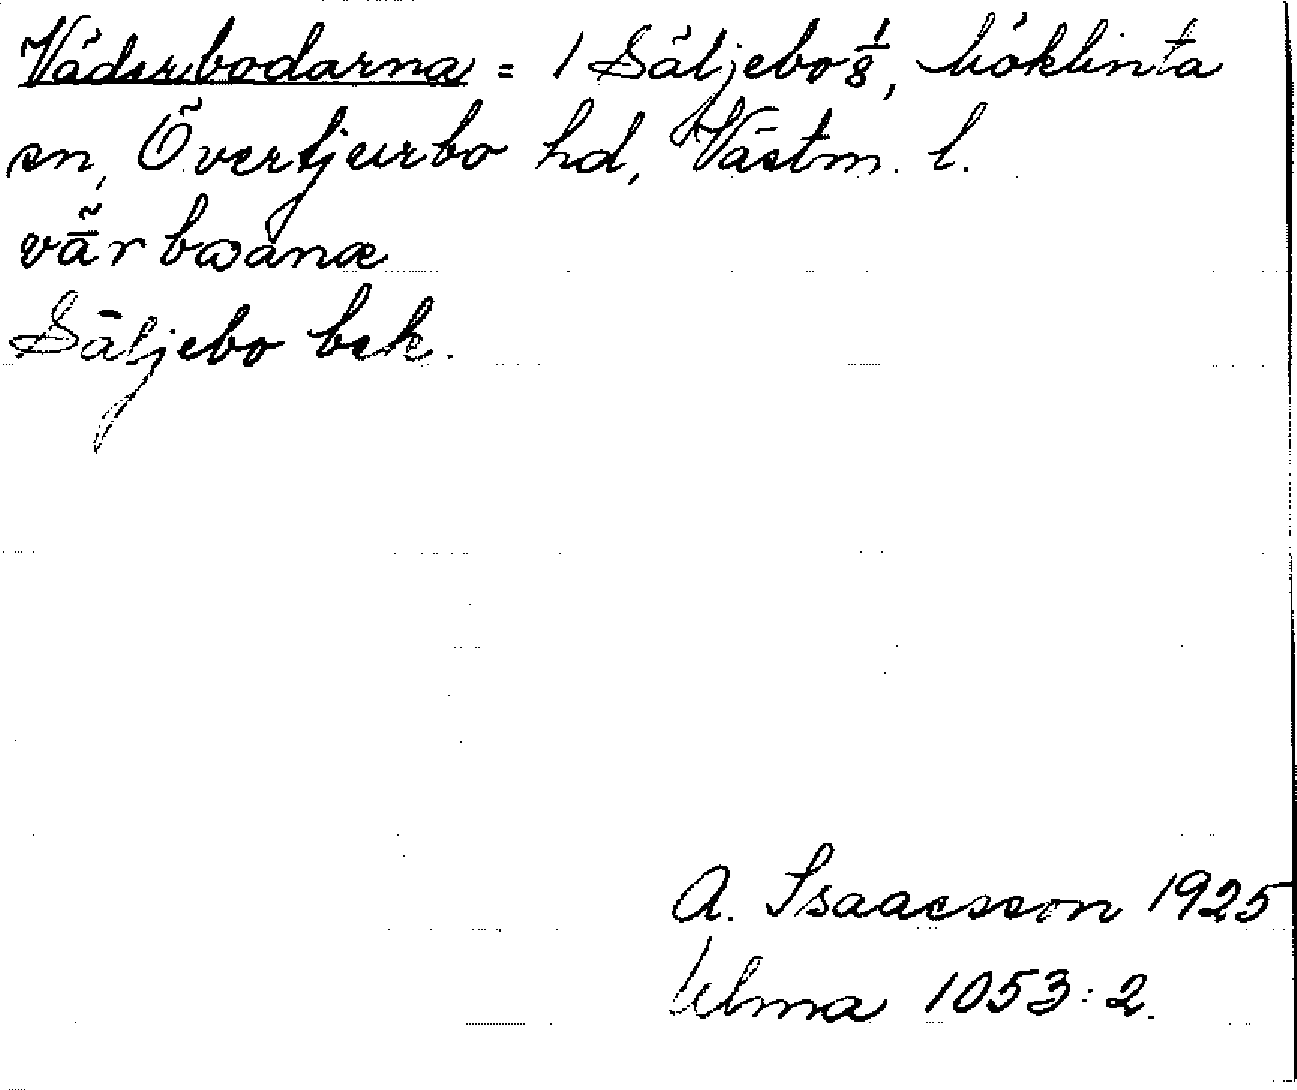 Väderbodarna = 1 Säljebo 1/8, Möklinta
sn, Övertjurbo hd, Västm. l.
vā̃r bωanæ
Säljebo bek.
A. Isaacsson 1925
Ulma 1053:2.